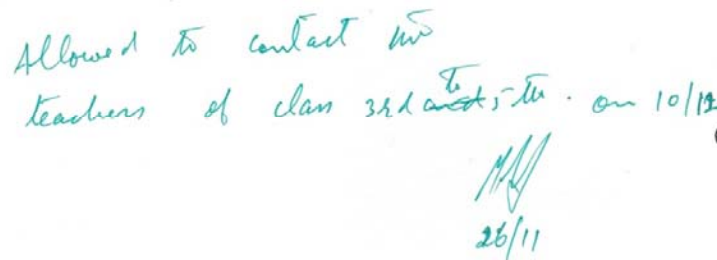 Allowed to contact
teachers of class 3rd to 5th. on 10/12
26/11